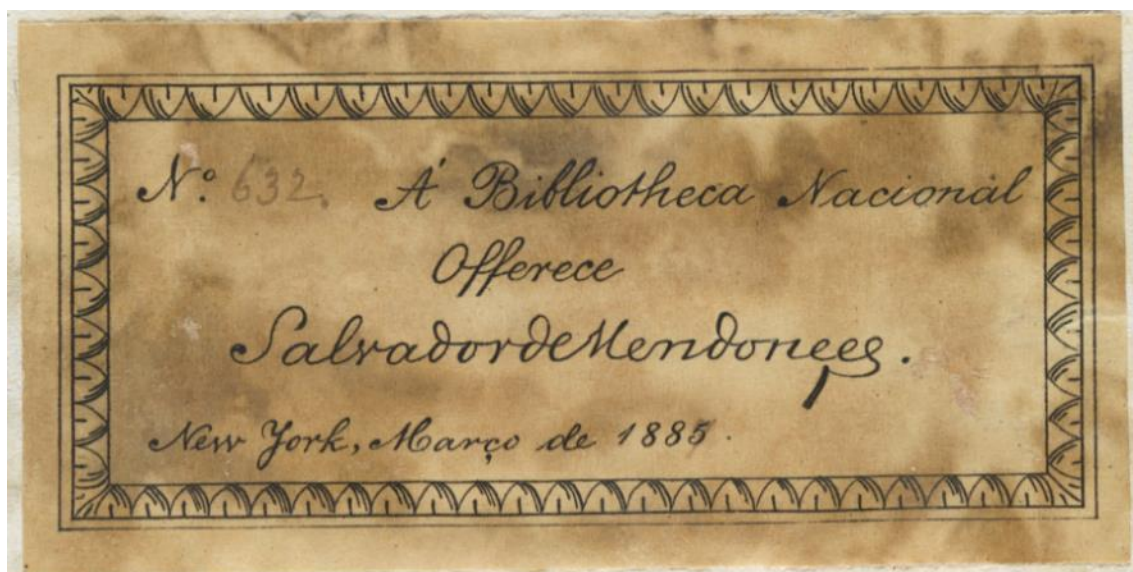 Nº 632. Á Bibliotheca Nacional
Offerece
Salvador de Mendonça.
New York, Março de 1885.